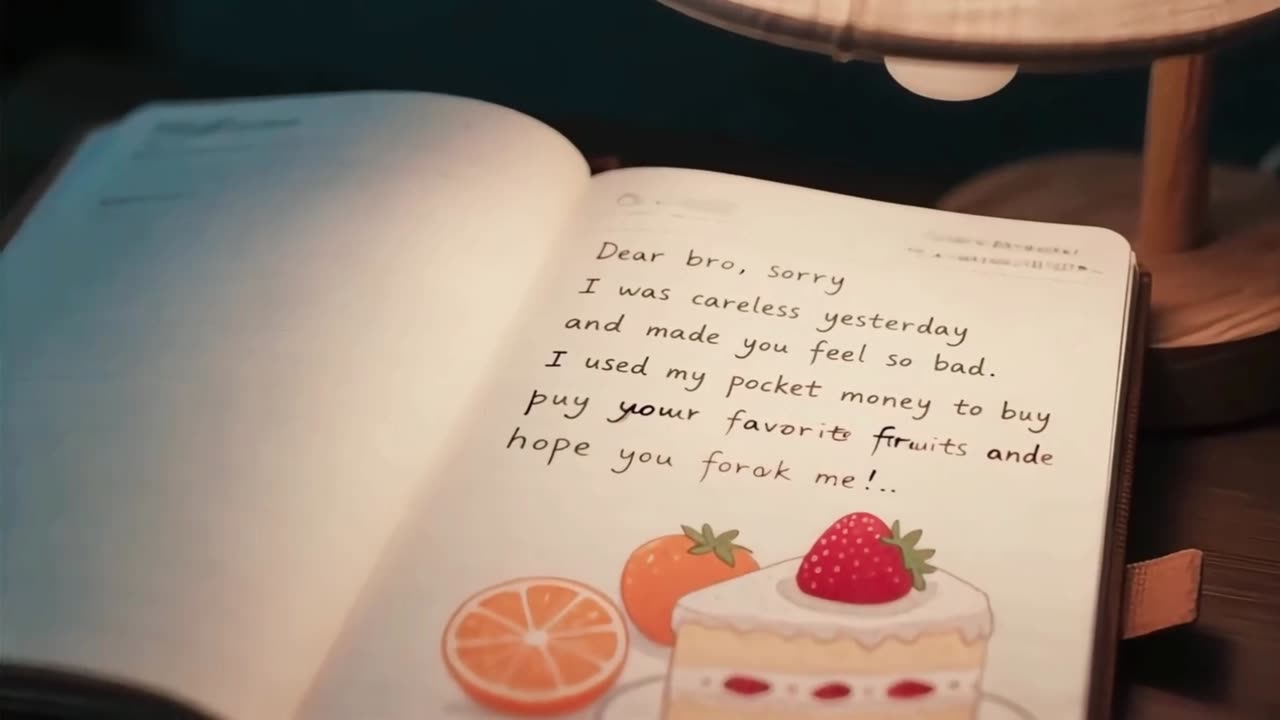 Dear bro, sorry
I was careless yesterday
and made you feel so bad.
I used my pocket money to buy
puy your favorite fruits ande
hope you forok me!..